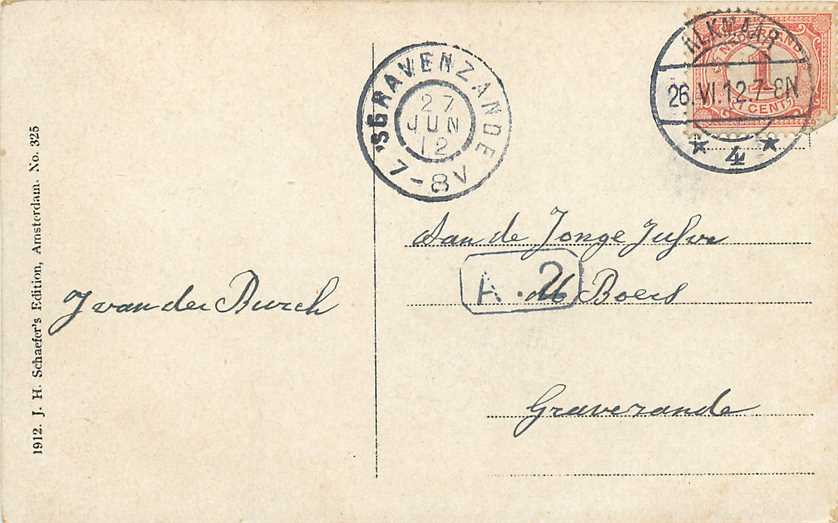 1912. J. H. Schaefer's Edition, Amsterdam. No. 325
J van der Burch
'SGRAVENZANDE
27
JUN
12
7-8V
ALKMAAR
26.VI.12.7-8N
* 4 *
1
CENT
Aan de Jonge Jufvr
A.2
M Boers
Gravezande